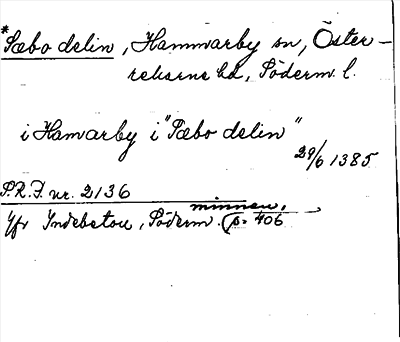 *Sæbo delin, Hammarby sn, Öster-
rekarne hd, Söderm. l.
i Hamarby i "Sæbo delin"
29/6 1385
S.R.P. nr. 2136
Jfr Indebetou, Söderm. minnen, p. 406